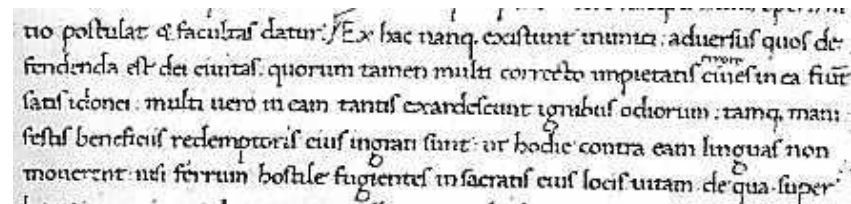 tio postulat & facultas datur. Ex hac nanq, existunt inimici. aduersus quos de
fendenda est dei ciuitas. quorum tamen multi correcto impietatis errore ciues in ea fiūt
satis idonei. multi uero in eam tantis exardescunt ignibus odiorum. tamq, mani
festis beneficiis redemptoris eius ingrati sunt. ut hodie contra eam linguas non
mouerent. nisi ferrum hostile fugientes in sacratis eius locis uitam. de qua super